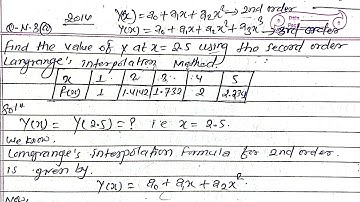 2014 Y(x) = a₀ + a₁x + a₂x² → 2nd order
Q.N.3(a) Y(x) = a₀ + a₁x + a₂x² + a₃x³ → 3rd order
find the value of y at x = 2.5 using the second order
Langrange's interpolation Method.
x 1 2 3 4 5
f(x) 1 1.4142 1.732 2 2.234
Solⁿ
Y(x) = Y(2.5) = ? i.e x = 2.5.
we know,
Langrange's interpolation formula for 2nd order
is given by
Y(x) = a₀ + a₁x + a₂x²
Now,